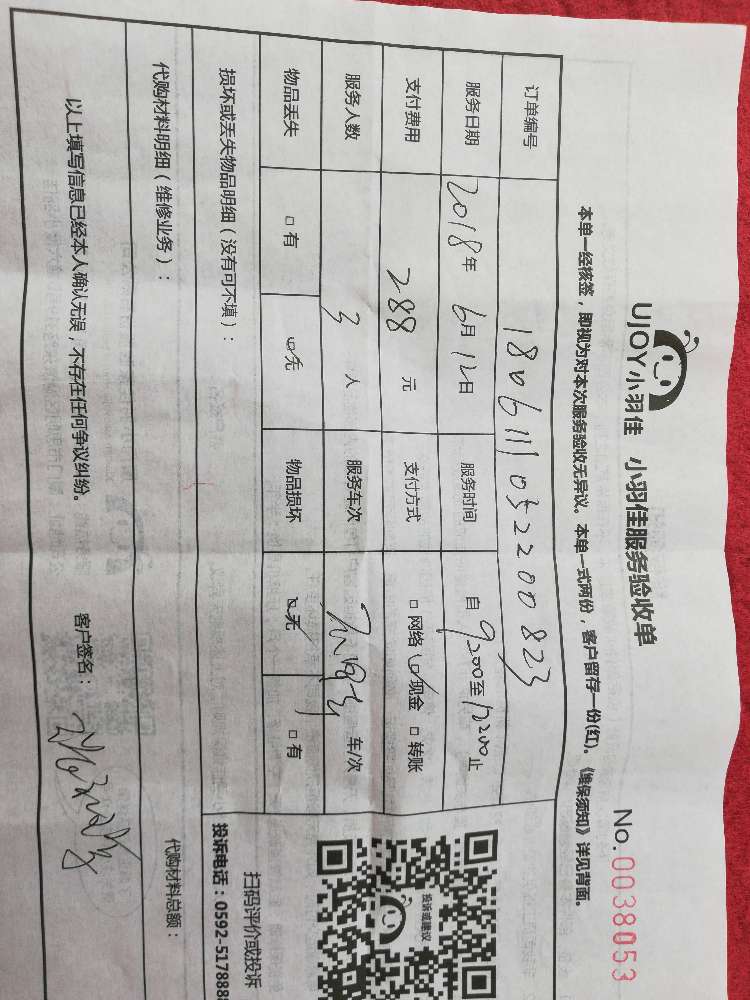 UJOY小羽佳 小羽佳服务验收单
No.0038053
本单一经核签，即视为对本次服务验收无异议。本单一式两份，客户留存一份(红)。《维保须知》详见背面。
订单编号 18061110322200823
服务日期 2018年 6月 12日 服务时间 自 9:00至12:00止
支付费用 288 元 支付方式 □ 网络 ☑现金 □ 转账
服务人数 3 人 服务车次 车/次
物品丢失 □ 有 ☑无 物品损坏 ☑无 □ 有
损坏或丢失物品明细（没有可不填）：
投诉或建议
扫码评价或投诉
投诉电话：0592-517888
代购材料明细（维修业务）：
代购材料总额：
以上填写信息已经本人确认无误，不存在任何争议纠纷。
客户签名：